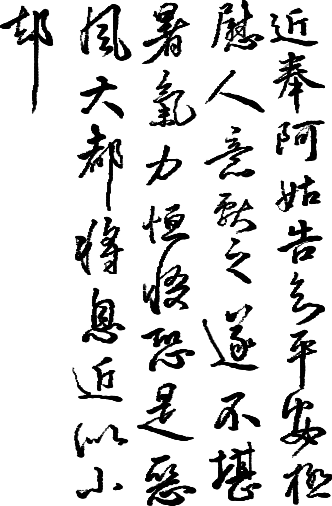 近奉阿姑告知平安極
慰人意獻之遂不堪
暑氣力恒惙恐是惡
風大都將息近似小
却